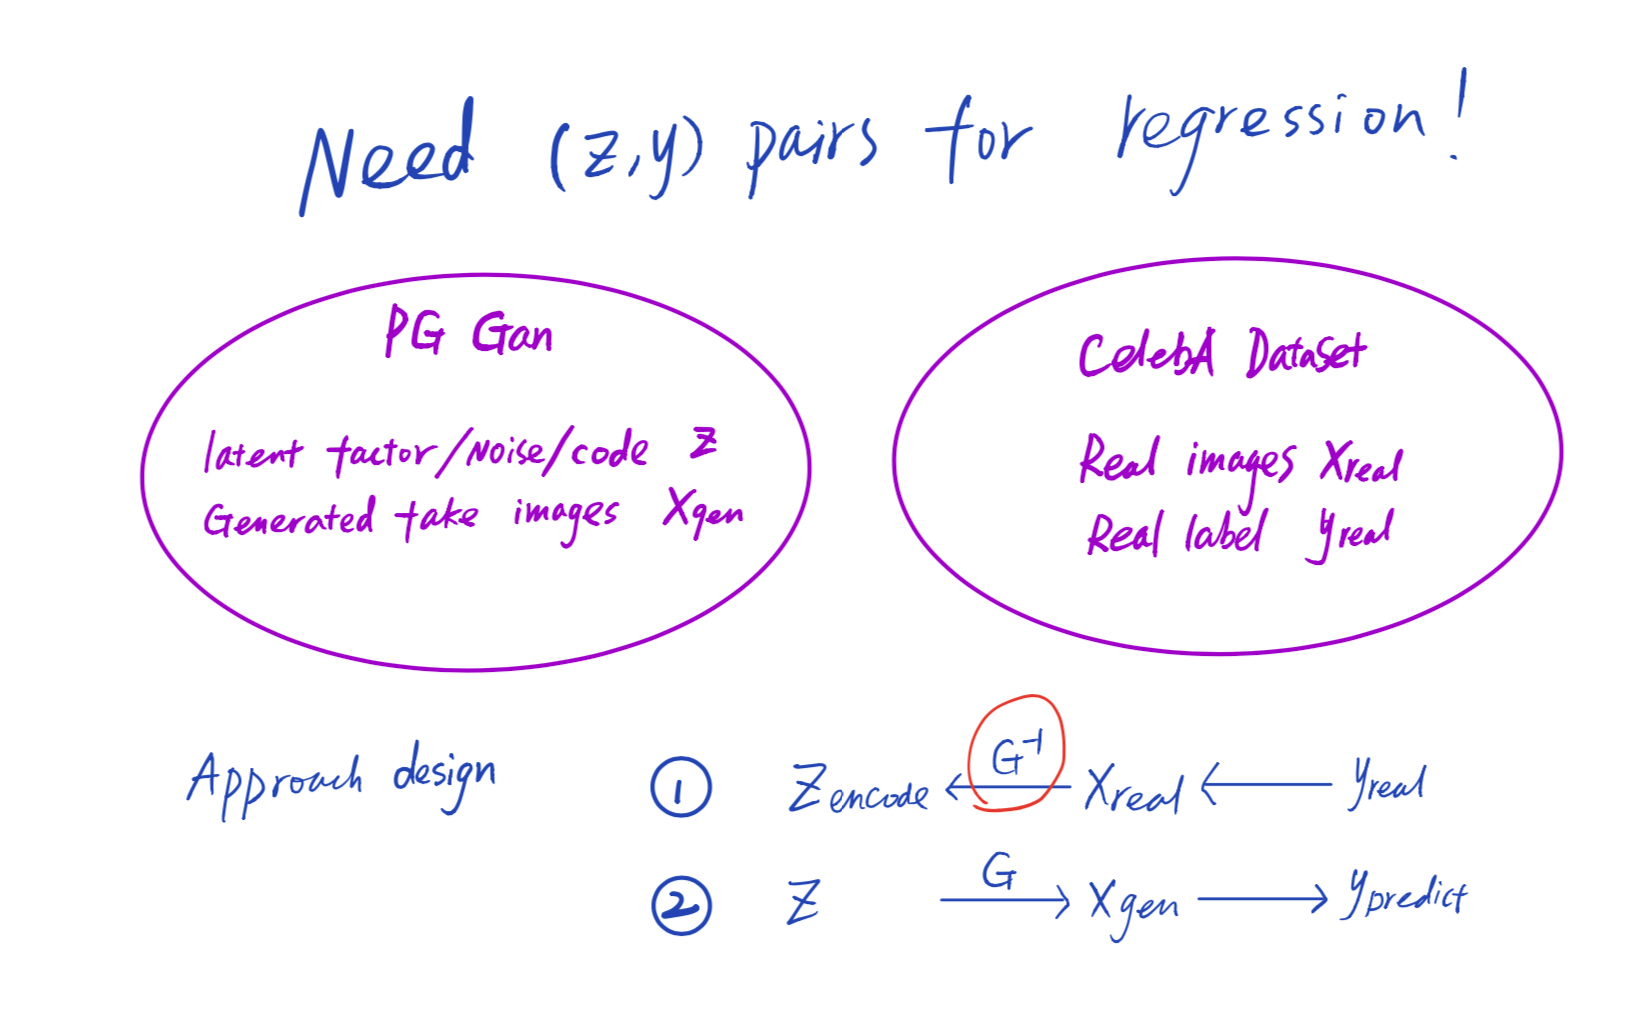 Need (z,y) pairs for regression!
PG Gan
latent factor/Noise/code z
Generated fake images Xgen
CelebA Dataset
Real images Xreal
Real label yreal
Approach design
① Zencode ← G⁻¹ Xreal ← yreal
② Z G → Xgen → ypredict